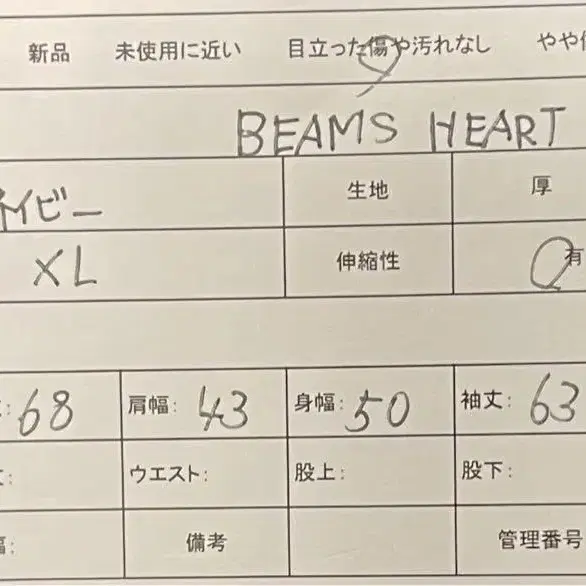 新品 未使用に近い 目立った傷や汚れなし やや
BEAMS HEART
ネイビー 生地 厚
XL 伸縮性 有
68 肩幅: 43 身幅: 50 袖丈: 63
ウエスト: 股上: 股下:
備考 管理番号